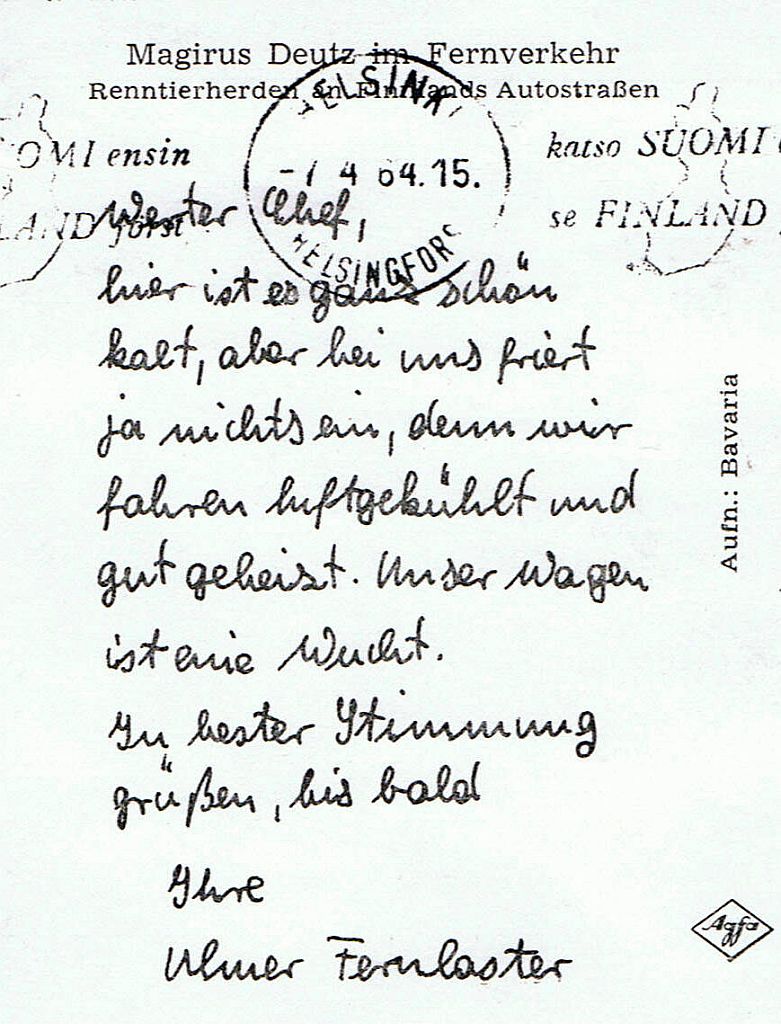 Magirus Deutz im Fernverkehr
Renntierherden an Finnlands Autostraßen
HELSINKI
-7 4 64.15.
HELSINGFORS
OMI ensin
LAND först
katso SUOMI
se FINLAND
Werter Chef,
hier ist es ganz schön
kalt, aber bei uns friert
ja nichts ein, denn wir
fahren luftgekühlt und
gut geheizt. Unser Wagen
ist eine Wucht.
In bester Stimmung
grüßen, bis bald
Ihre
Ulmer Fernlaster
Aufn.: Bavaria
Agfa